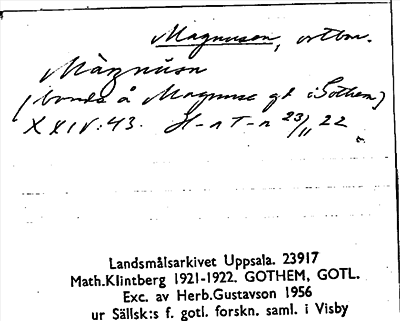 Magnuson, ortbor.
Màgnüsn
(bonde å Magnuse gd i Gothem)
XXIV:43. H-n T-n 23/11 22
Landsmålsarkivet Uppsala. 23917
Math.Klintberg 1921-1922. GOTHEM, GOTL.
Exc. av Herb.Gustavson 1956
ur Sällsk:s f. gotl. forskn. saml. i Visby